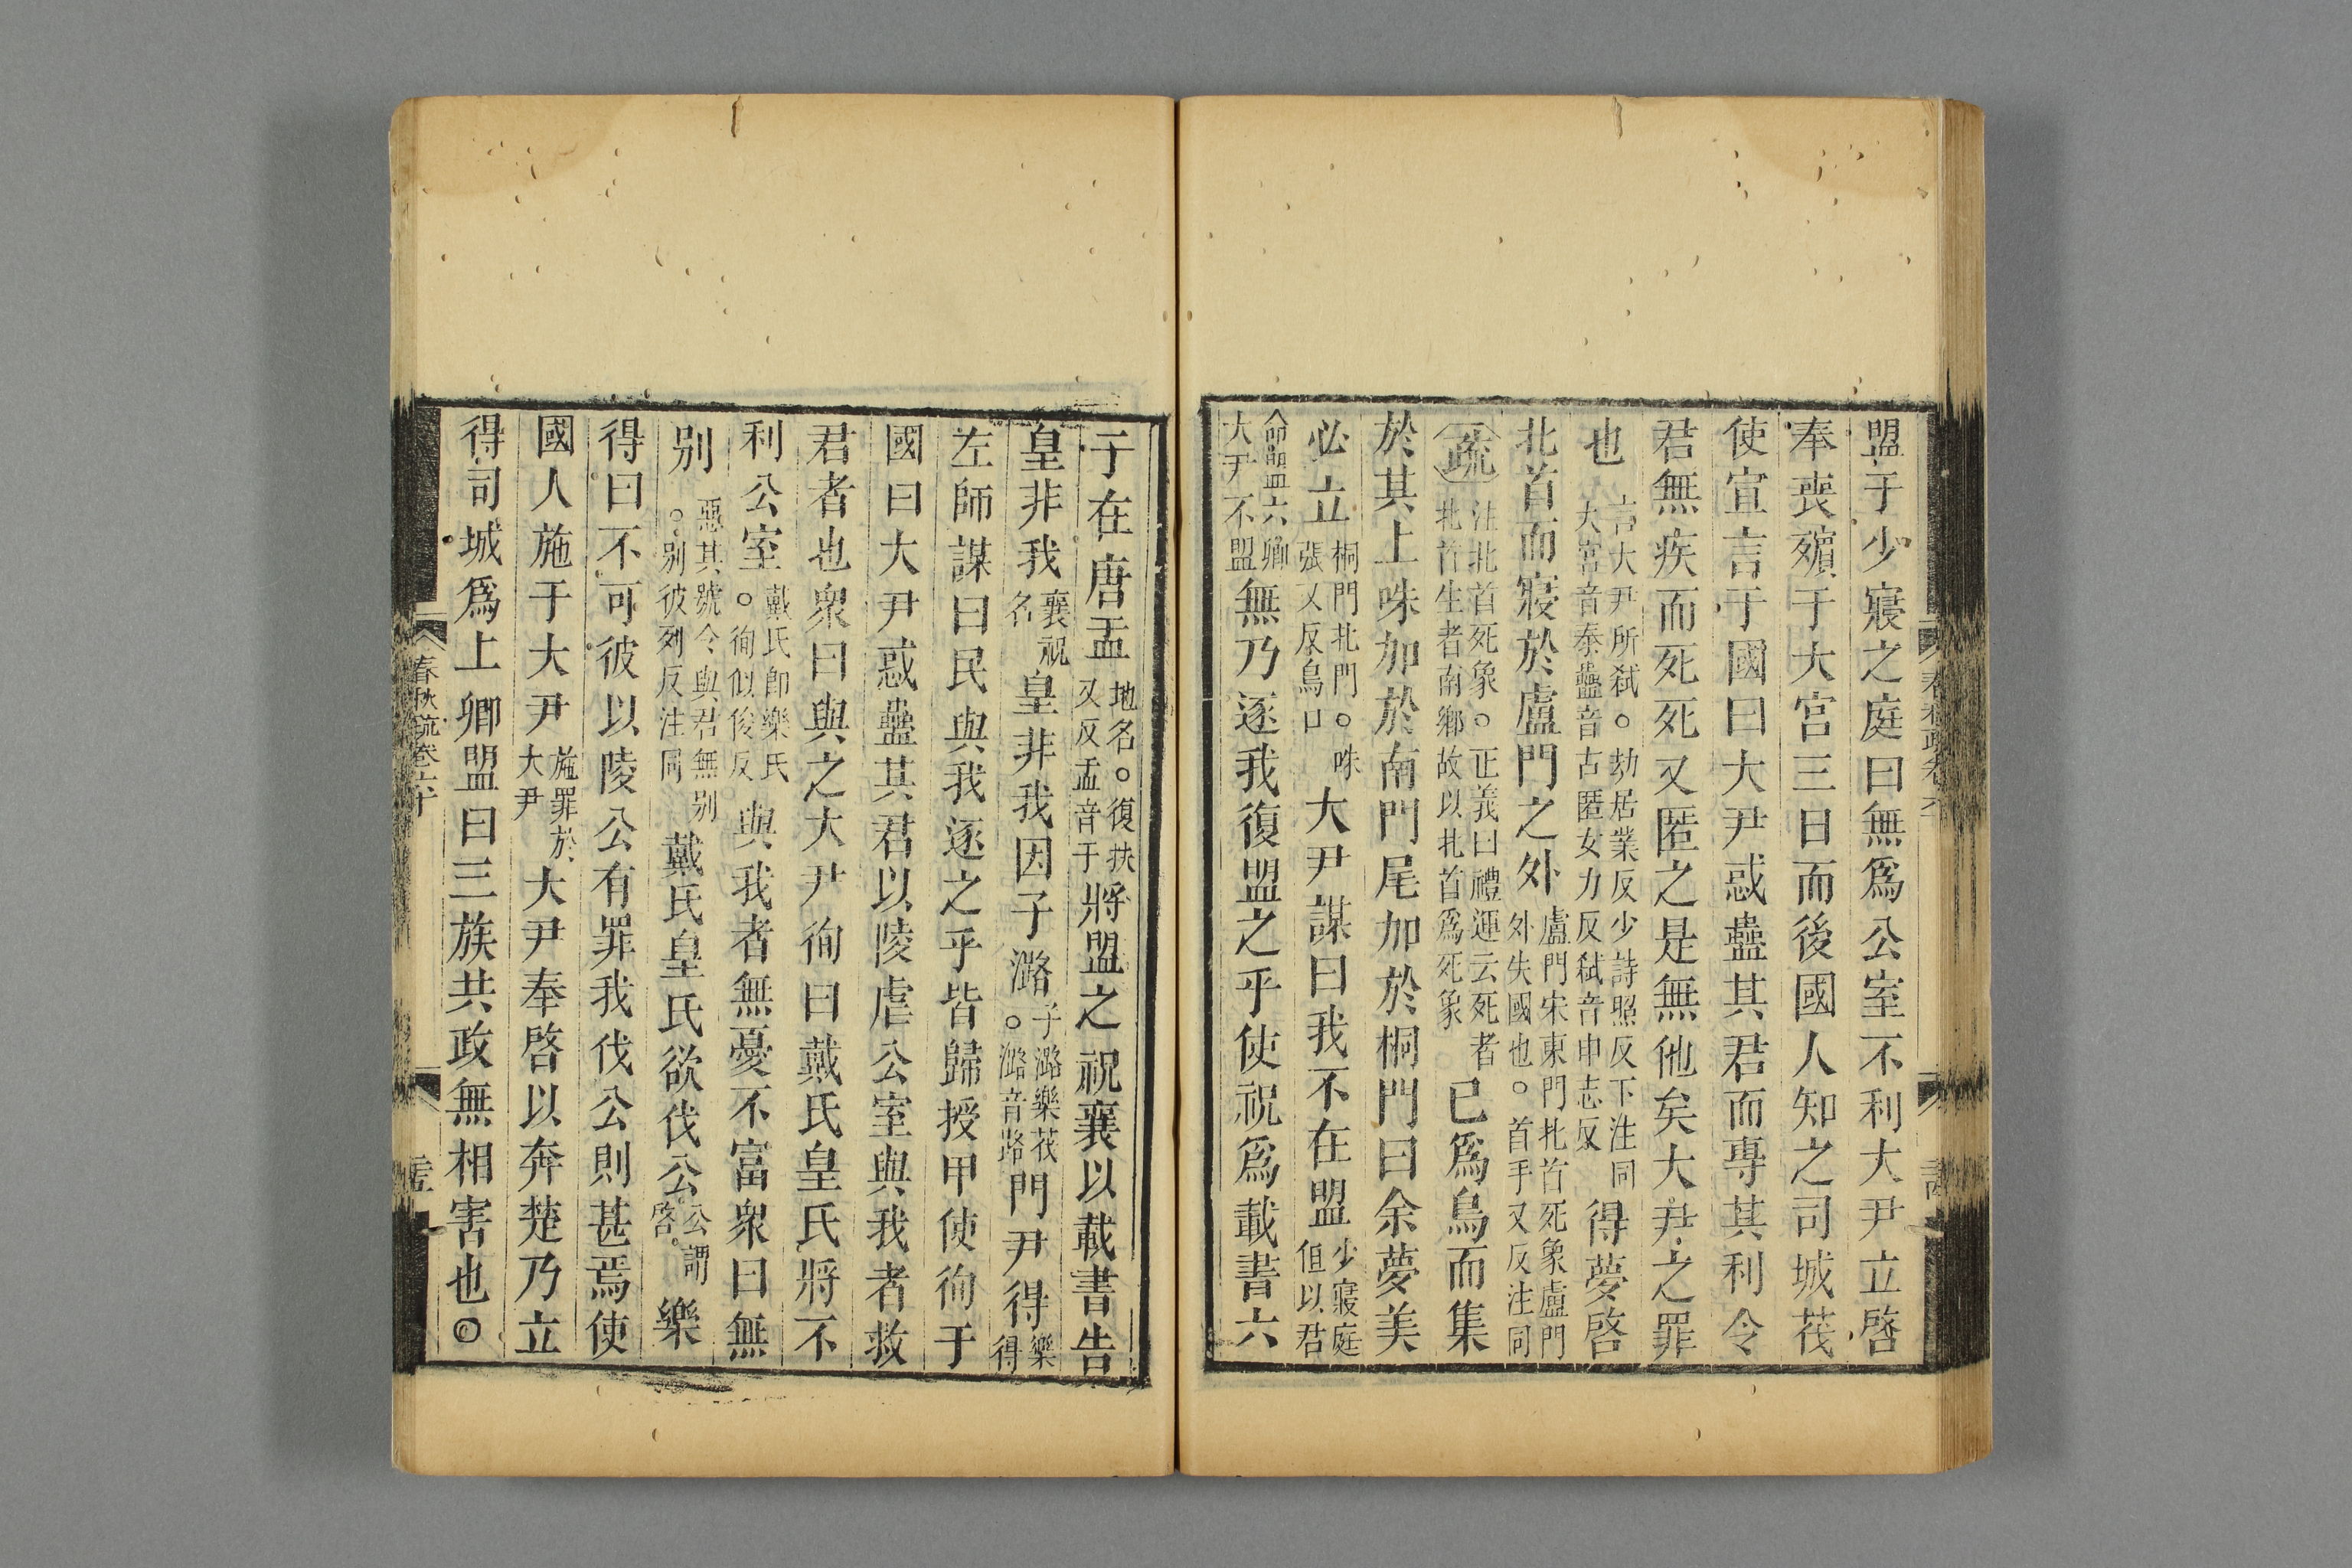 盟于少寢之庭曰無爲公室不利大尹立啓
奉喪殯于大宮三日而後國人知之司城茷
使宣言于國曰大尹惑蠱其君而專其利令
君無疾而死死又匿之是無他矣大尹之罪
也言大尹所弑○劫居業反少詩照反下注同大宮音泰蠱音古匿女力反弑音申志反得夢啓
北首而寢於盧門之外盧門宋東門北首死象盧門外失國也○首手又反注同
疏注北首死象○正義曰禮運云死者北首生者南鄉故以北首爲死象已爲烏而集
於其上咮加於南門尾加於桐門曰余夢美
必立桐門北門○咮張又反鳥口大尹謀曰我不在盟少寢庭但以君
命盟六卿大尹不盟無乃逐我復盟之乎使祝爲載書六
子在唐盂地名○復扶又反盂音于將盟之祝襄以載書告
皇非我襄祝名皇非我因子潞子潞樂茷○潞音路門尹得樂得
左師謀曰民與我逐之乎皆歸授甲使徇于
國曰大尹惑蠱其君以陵虐公室與我者救
君者也衆曰與之大尹徇曰戴氏皇氏將不
利公室戴氏卽樂氏○徇似俊反與我者無憂不富衆曰無
别惡其號令與君無别○别彼列反注同戴氏皇氏欲伐公公謂啓樂
得曰不可彼以陵公有罪我伐公則甚焉使
國人施于大尹施罪於大尹大尹奉啓以奔楚乃立
得司城爲上卿盟曰三族共政無相害也○
春秋疏卷六十